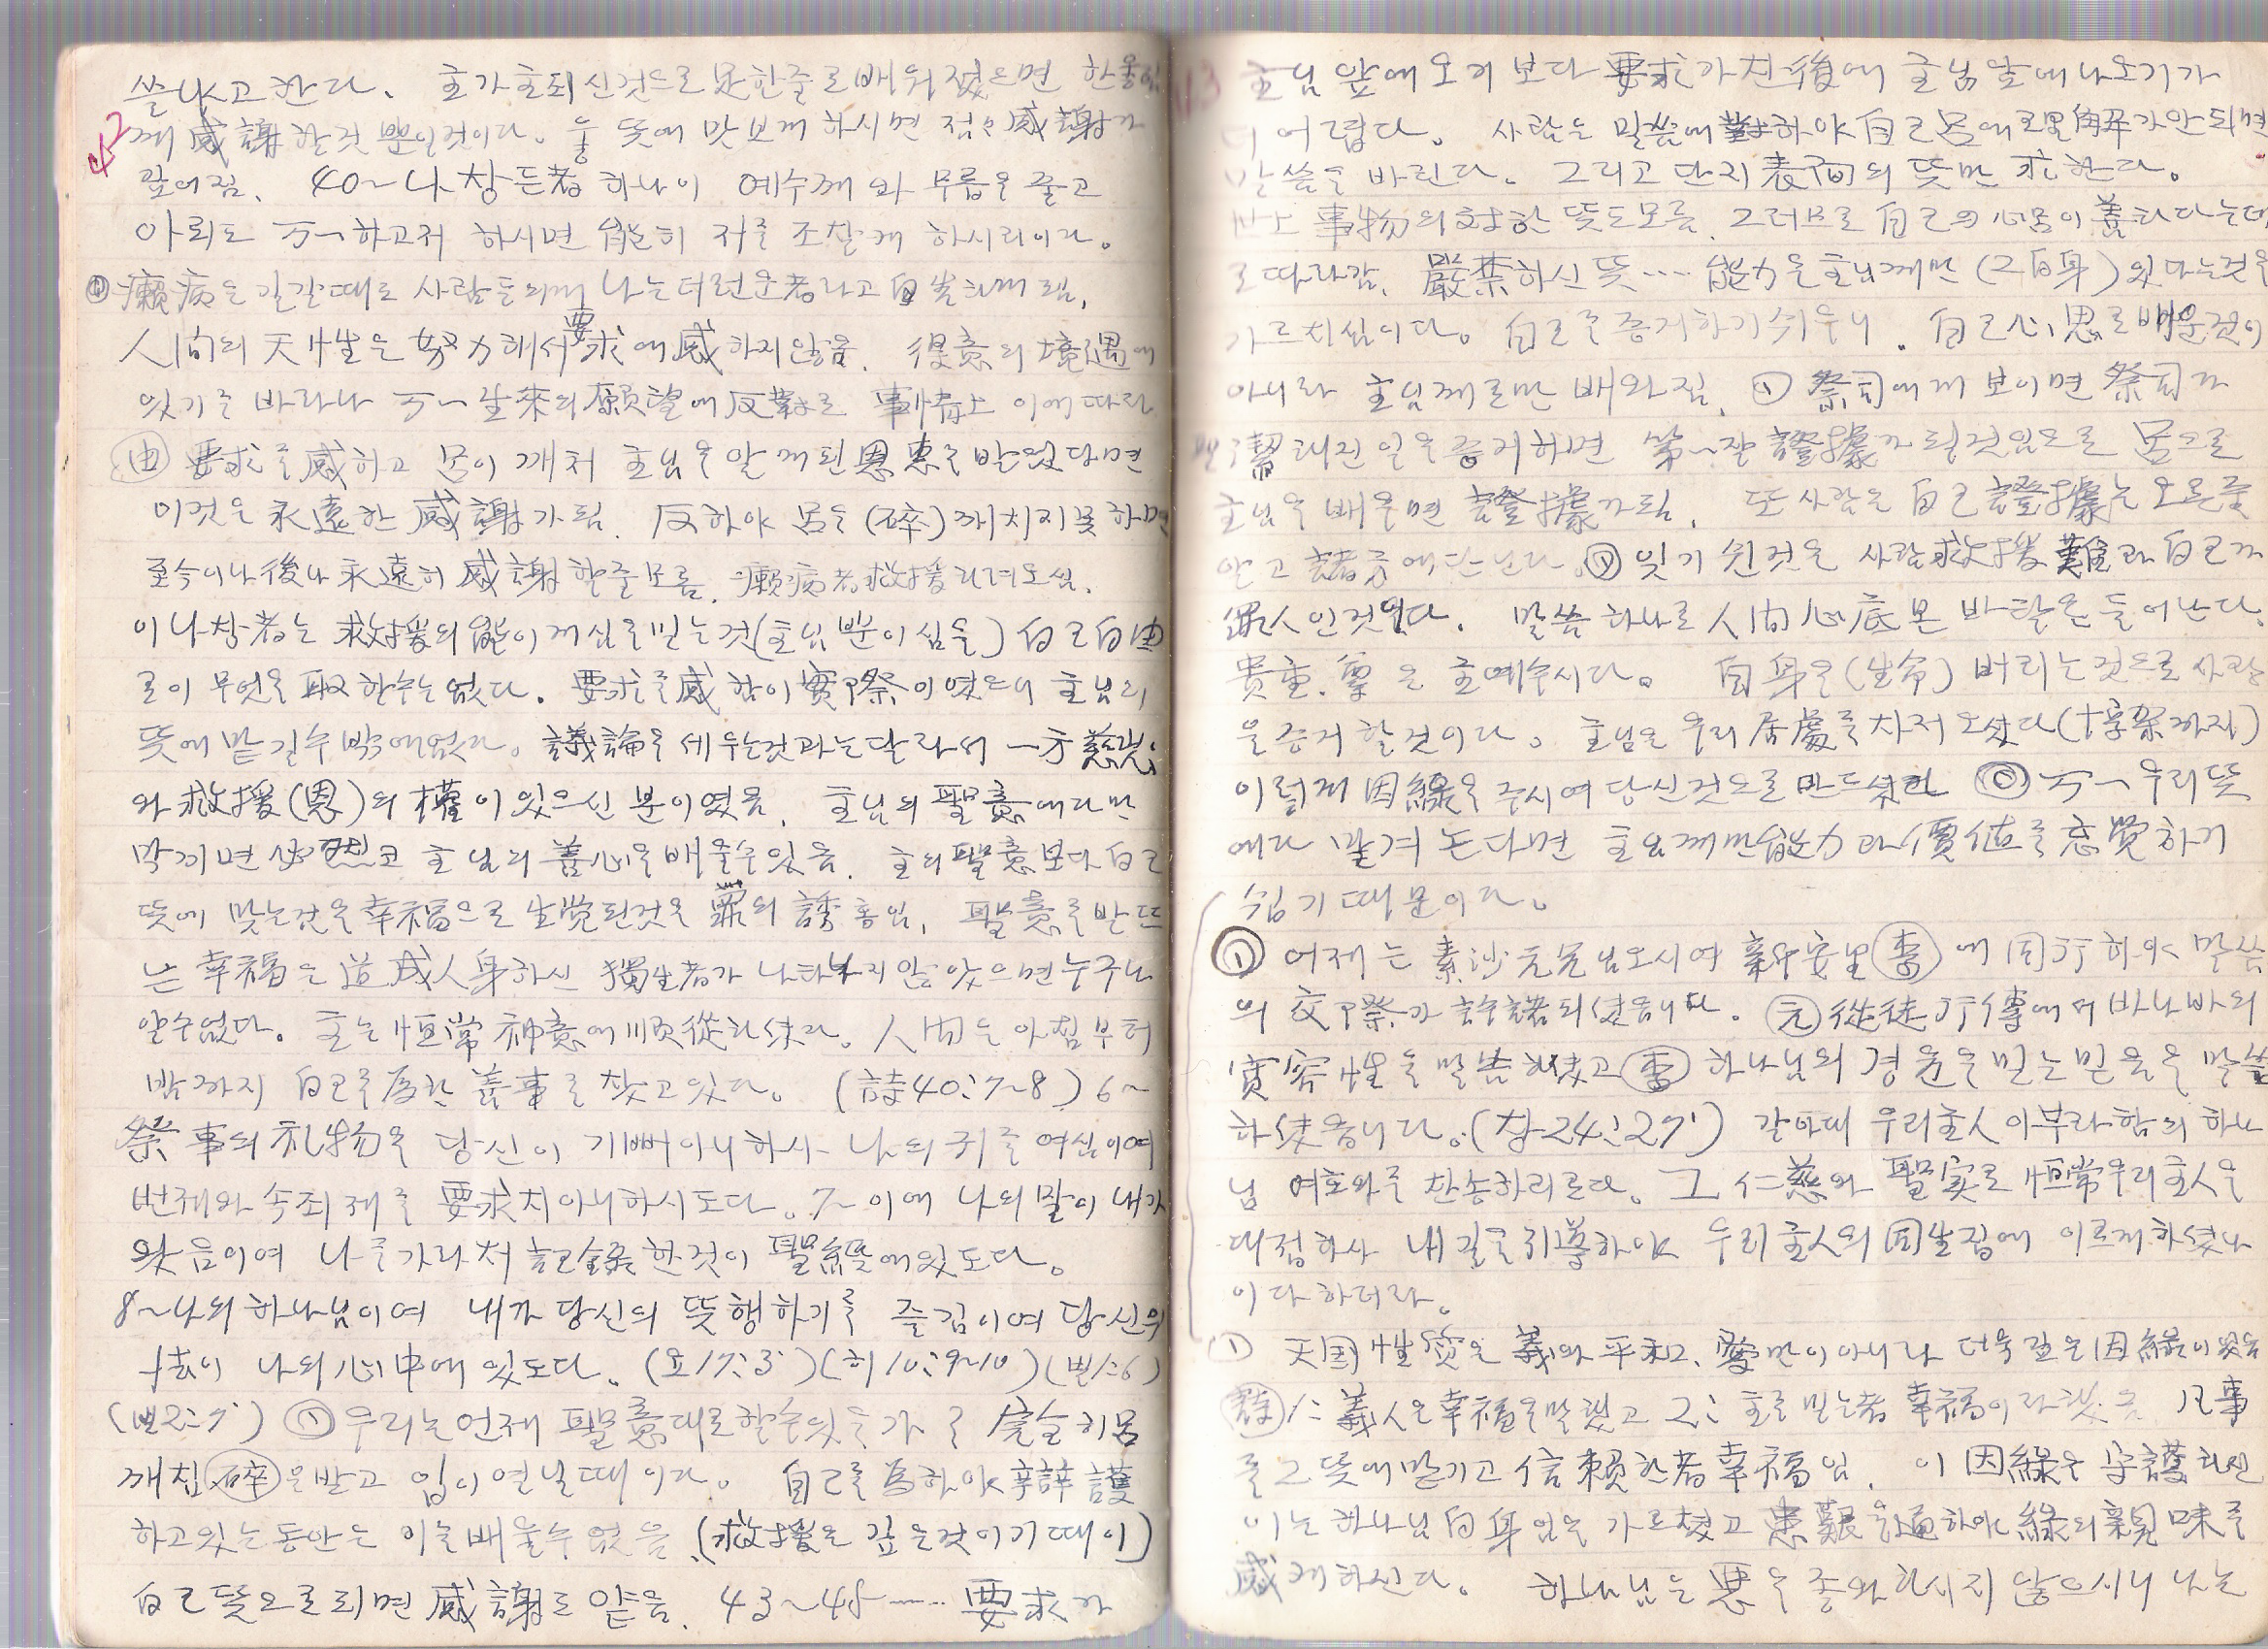 쓸나고 한다. 主가 主되신것으로 한줄로 배워졌으면
42 께 感謝할것 뿐일것이다. 뜻에 맛보게 하시면 점々 感謝가
깊어짐. 40~나창든者 하나이 예수께 와 무릅을 꿀고
아뢰되 万一하고저 하시면 能히 저를 조찰케 하시리이다.
癩病은 길갈때도 사람들의게 나는더런운者라고
人間의 天性은 努力해서 要求에 感하지않음. 得意의 境遇에
있기를 바라나 万一生來의 願望에 反對로 事情上 이에 따라
由 要求를 感하고 몸이 깨처 主님을 알게된 恩惠를 받었다면
이것은 永遠한 感謝가됨. 反하야 몸을 (碎) 깨치지못하면
至今이나 後나 永遠히 感謝할줄모름. 癩病者救援
이나창者는 救援의 能이 게심을믿는것(主님 뿐이심을) 自己自由
로이 무엇을 取할수는없다. 要求를 感함이 實際이였으니 主님의
뜻에 맡길수밖에없다. 議論을 세우는것과는달라서 一方 慈悲
와 救援(恩)의 權이 있으신 분이였음. 主님의 聖意에다만
막기면 必然코 主님의 善心을배울수있음. 主의 聖意보다 自己
뜻에 맞는것을 幸福으로 生覚된것은 罪의 誘惑임. 聖意를받드
는 幸福은 道成人身하신 獨生者가 나타나지않았으면 누구나
알수없다. 主는 恒常 神意에順從하섰다. 人間은 아침부터
밤까지 自己를爲한 善事를 찾고있다. (詩40:7~8) 6~
祭事의 礼物을 당신이 기뻐아니하사 나의 귀를 여심이여
번제와 속죄제를 要求치아니하시도다. 7~ 이에 나의 말이 내가
왔음이여 나를가라처 記錄한것이 聖經에있도다.
8~나의 하나님이여 내가 당신의 뜻행하기를 즐김이여 당신의
法이 나의 心中에 있도다. (요17:3) (히10:9~10) (빌1:6)
(빌2:7) 우리는 언제 聖意대로할수있을가 를 完全히몸
깨침 碎 을받고 입이 연닐때이다. 自己를 爲하야 辯護
하고있는동안은 이를배울수 없음. (救援은 깊은것이기때이)
自己뜻으로되면 感謝도 얕음. 43~45…… 要求가
主님 앞에오기 보다 要求가친後에 主님앞에나오기가
더 어렵다. 사람은 말씀에對하야 自己몸에 理解가안되면
말씀을 바린다. 그리고 단지 表面의 뜻만 求한다.
世上 事物의 対한 뜻도모름. 그러므로 自己의 心몸이 善하다는데
로따라감. 嚴禁하신 뜻… 能力을主님께만 (그自身) 있다는것을
가르치심이다. 自己를 증거하기쉬우니. 自己心思로배운것이
아니라 主님께로만 배와짐. 祭司에게 보이면 祭司가
潔해진일을증거하면 第一잘 證據가될것임으로 몸으로
主님을 배우면 證據가됨. 또 사람은 自己證據는 오른줄
알고 諸方에단닌다. 잊기 쉬운것은 사람救援 難과 自己가
罪人인것이다. 말씀 하나로 人間心底 본 바탕은 들어난다.
貴重. 尊 은 主예수시다. 自身을(生命) 버리는것으로 사랑
을증거 할것이다. 主님은 우리 居處를차저 오섰다(十字架까지)
이렇게 因緣을 주시여 당신것으로만드섰다 万一 우리뜻
에다 맡겨 논다면 主님께만 能力과 價値를 忘覺하기
쉽기 때문이다.
어제는 素沙元兄님오시여 新安里 李 에 同行하야 말씀
의 交際가 許諾되섰음니다. 元 使徒行傳에서 바나바의
寬容性을 말씀하섰고 李 하나님의 경륜을믿는 믿음을 말씀
하섰음니다. (창24:27) 갈아대 우리主人아부라함의 하나
님 여호와를 찬송하리로다. 그 仁慈와 聖実로 恒常우리主人을
대접하사 내길을引導하야 우리主人의 同生집에 이르게하섰나
이다 하더라.
天国 性質은 義와 平和, 愛만이아니라 더욱 깊은因緣이있음
詩 1: 義人은 幸福을말했고 2: 主를 믿는者 幸福이라했음 凡事
를 그뜻에맡기고 信賴한者幸福임. 이 因緣을 守護하신
이는 하나님 自身임을 가르쳤고 患難을通하야 緣의 親味를
感케하신다. 하나님은 悪을 좋와하시지 않으시니 나는